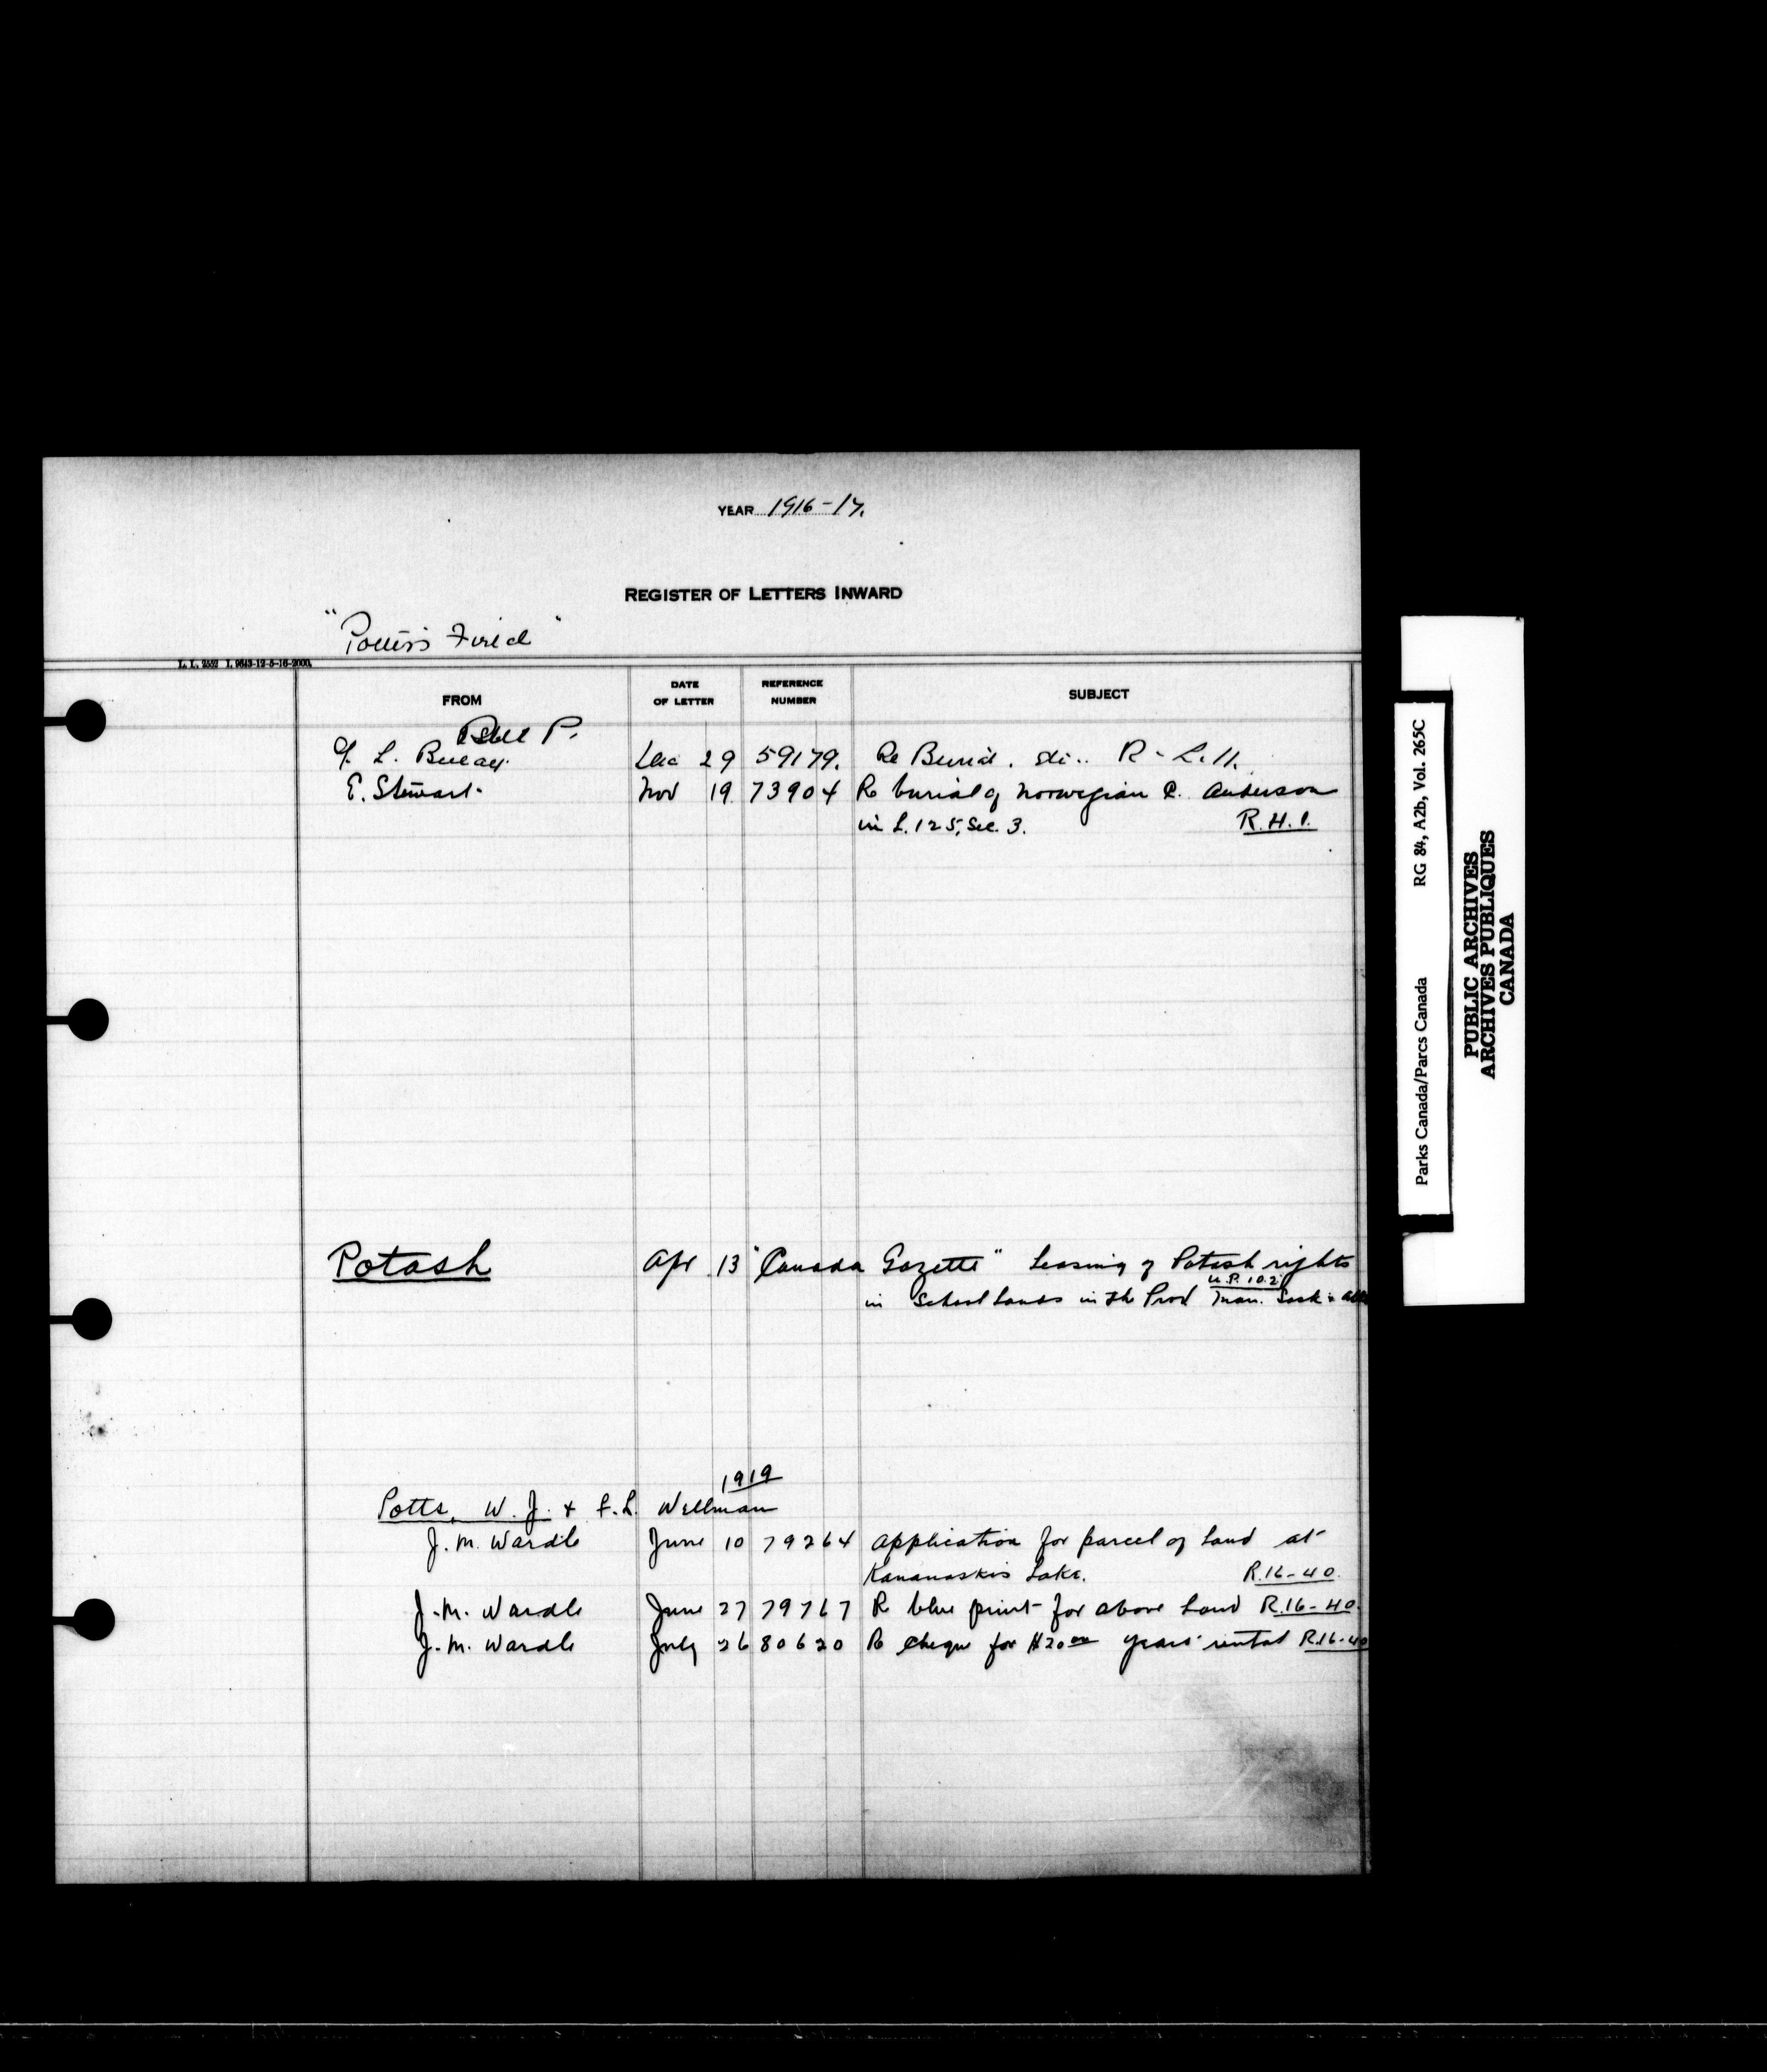 YEAR 1916-17.
REGISTER OF LETTERS INWARD
"Potter's Field"
L. L. 2552 I. 9643-12-5-16-2000.
FROM
DATE OF LETTER
REFERENCE NUMBER
SUBJECT
P.
L. Dec 29 59179. Re Burial. R-L.11.
E. Stewart. Nov 19 73904 Re burial of Norwegian C. Anderson
in L.125, Sec. 3. R.H.1.
Potash Apr 13 "Canada Gazette" Leasing of Potash rights
U.P. 10.2
in School Lands in the Prov Man. Sask &
1919
Potts, W. J. & F.L. Wellman
J. M. Wardle June 10 79264 Application for parcel of land at
Kananaskis Lake. R.16-40.
J. M. Wardle June 27 79767 Re blue print for above land R.16-40.
J. M. Wardle July 26 80620 Re cheque for $20 00 years' rental R.16-40
RG 84, A2b, Vol. 265C
Parks Canada/Parcs Canada
PUBLIC ARCHIVES
ARCHIVES PUBLIQUES
CANADA